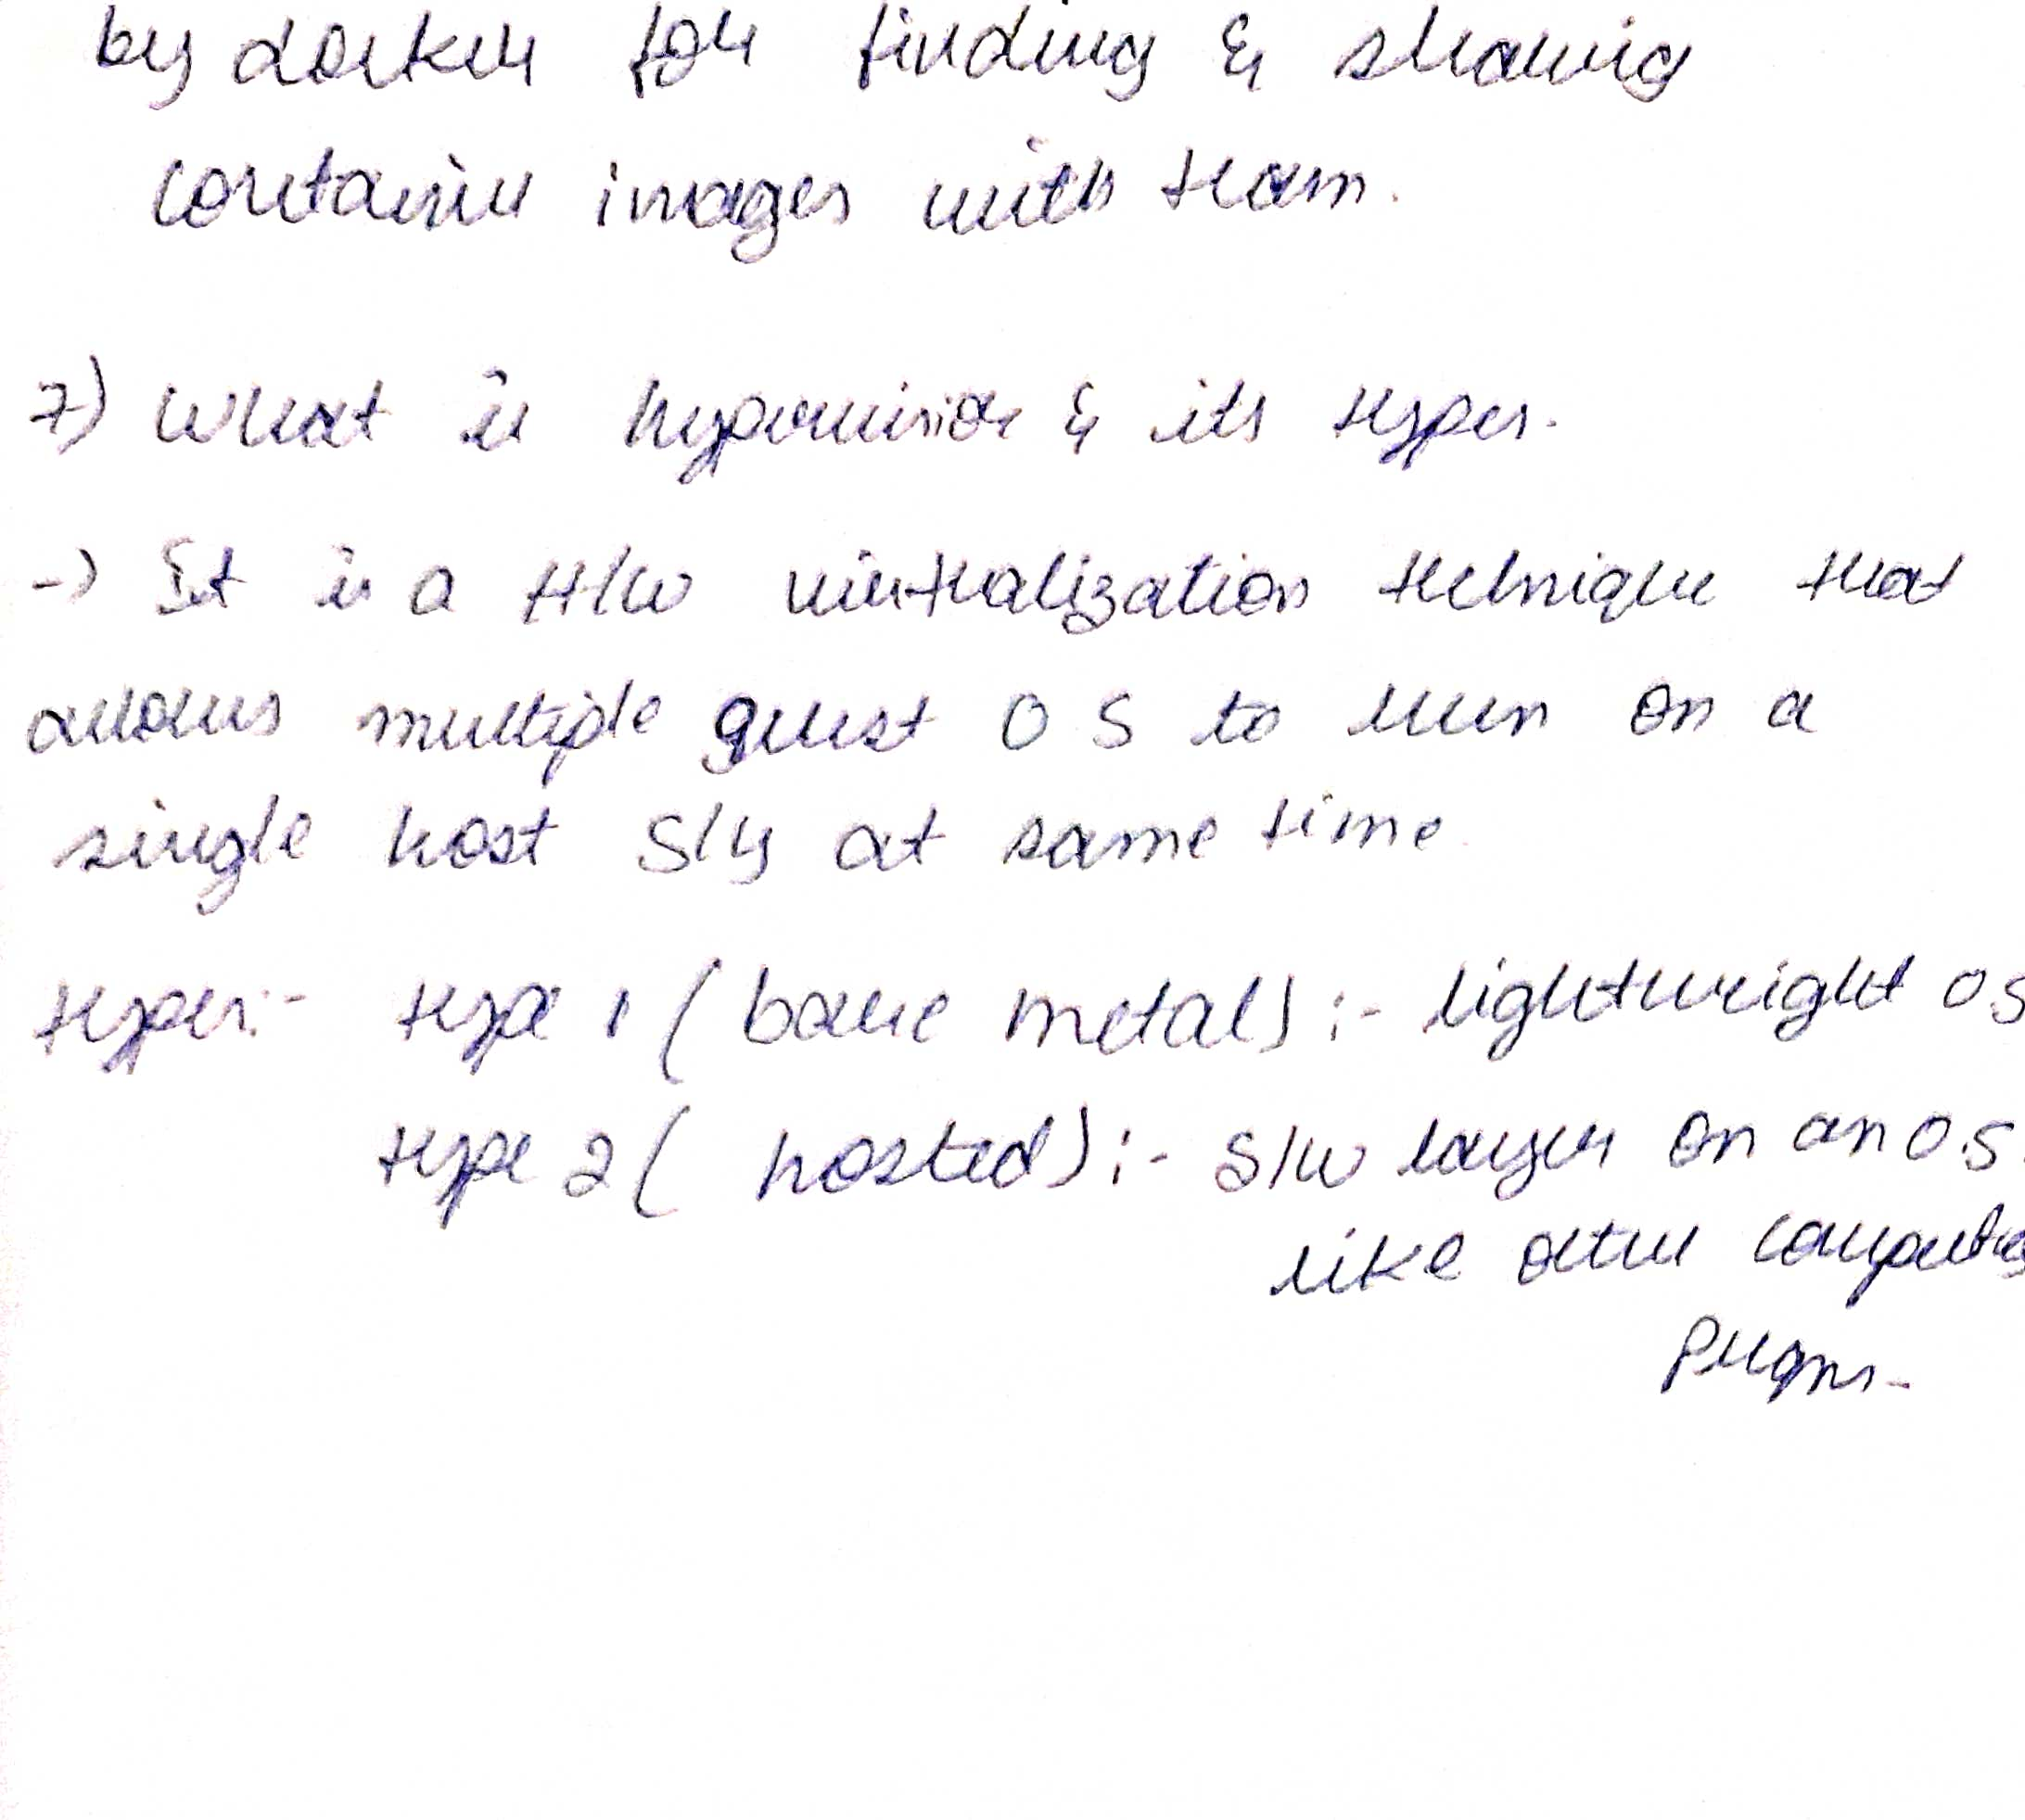 by docker for finding & sharing
container images with team.
7) What is hypervisior & its types.
-> It is a H/W virtualization technique that
allows multiple guest O S to run on a
single host S/y at same time.
types:- type 1 ( bare metal) :- lightweight O S
type 2 ( hosted) :- S/W layer on an O.S.
like other computer
prgms.